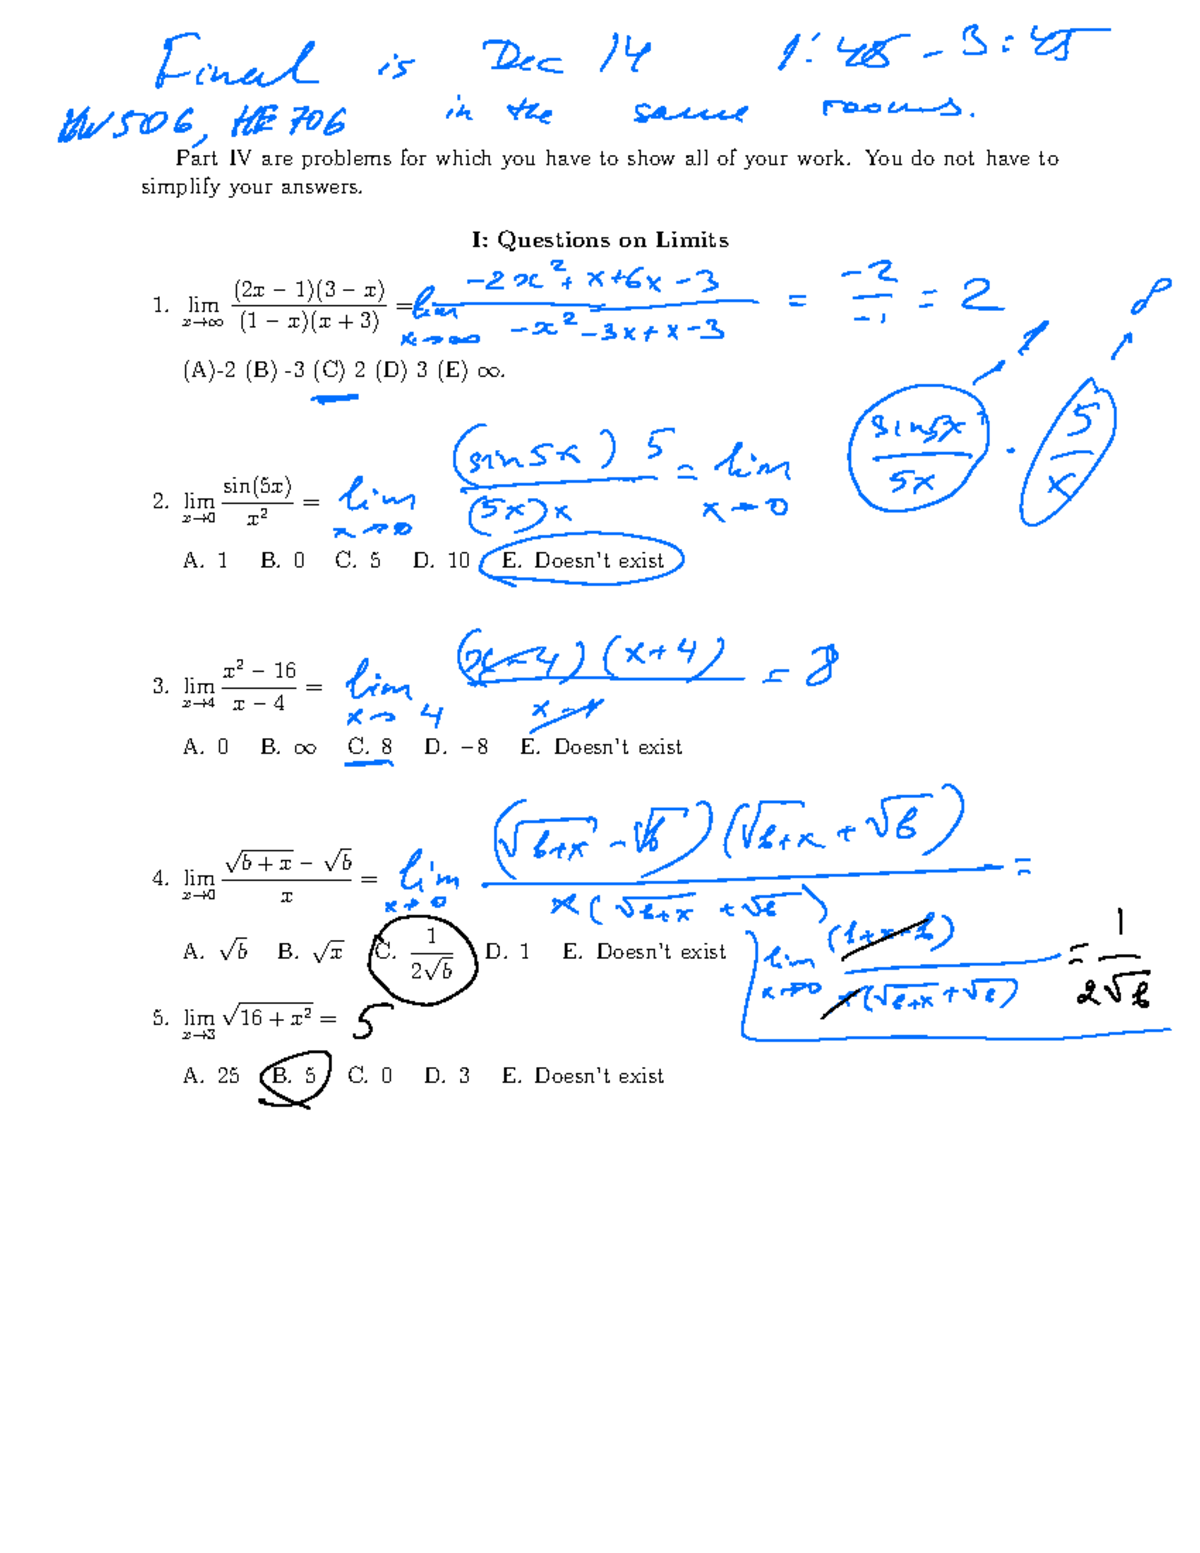 Final is Dec 14 1:45 - 3:45
HW506, HE706 in the same rooms.
Part IV are problems for which you have to show all of your work. You do not have to
simplify your answers.
I: Questions on Limits
1. lim x→∞ (2x − 1)(3 − x) / (1 − x)(x + 3) = lim x→∞ -2x² + x + 6x - 3 / -x² - 3x + x - 3 = -2 / -1 = 2
(A)-2 (B) -3 (C) 2 (D) 3 (E) ∞.
2. lim x→0 sin(5x) / x² = lim x→0 (sin5x) 5 / (5x) x = lim x→0 sin5x / 5x · 5 / x
1 ∞
A. 1 B. 0 C. 5 D. 10 E. Doesn't exist
3. lim x→4 x² − 16 / x − 4 = lim x→4 (x-4)(x+4) / x-4 = 8
A. 0 B. ∞ C. 8 D. −8 E. Doesn't exist
4. lim x→0 √b + x − √b / x = lim x→0 (√b+x - √b)(√b+x + √b) / x(√b+x + √b) =
A. √b B. √x C. 1 / 2√b D. 1 E. Doesn't exist
lim x→0 (b+x-b) / x(√b+x + √b) = 1 / 2√b
5. lim x→3 √16 + x² = 5
A. 25 B. 5 C. 0 D. 3 E. Doesn't exist